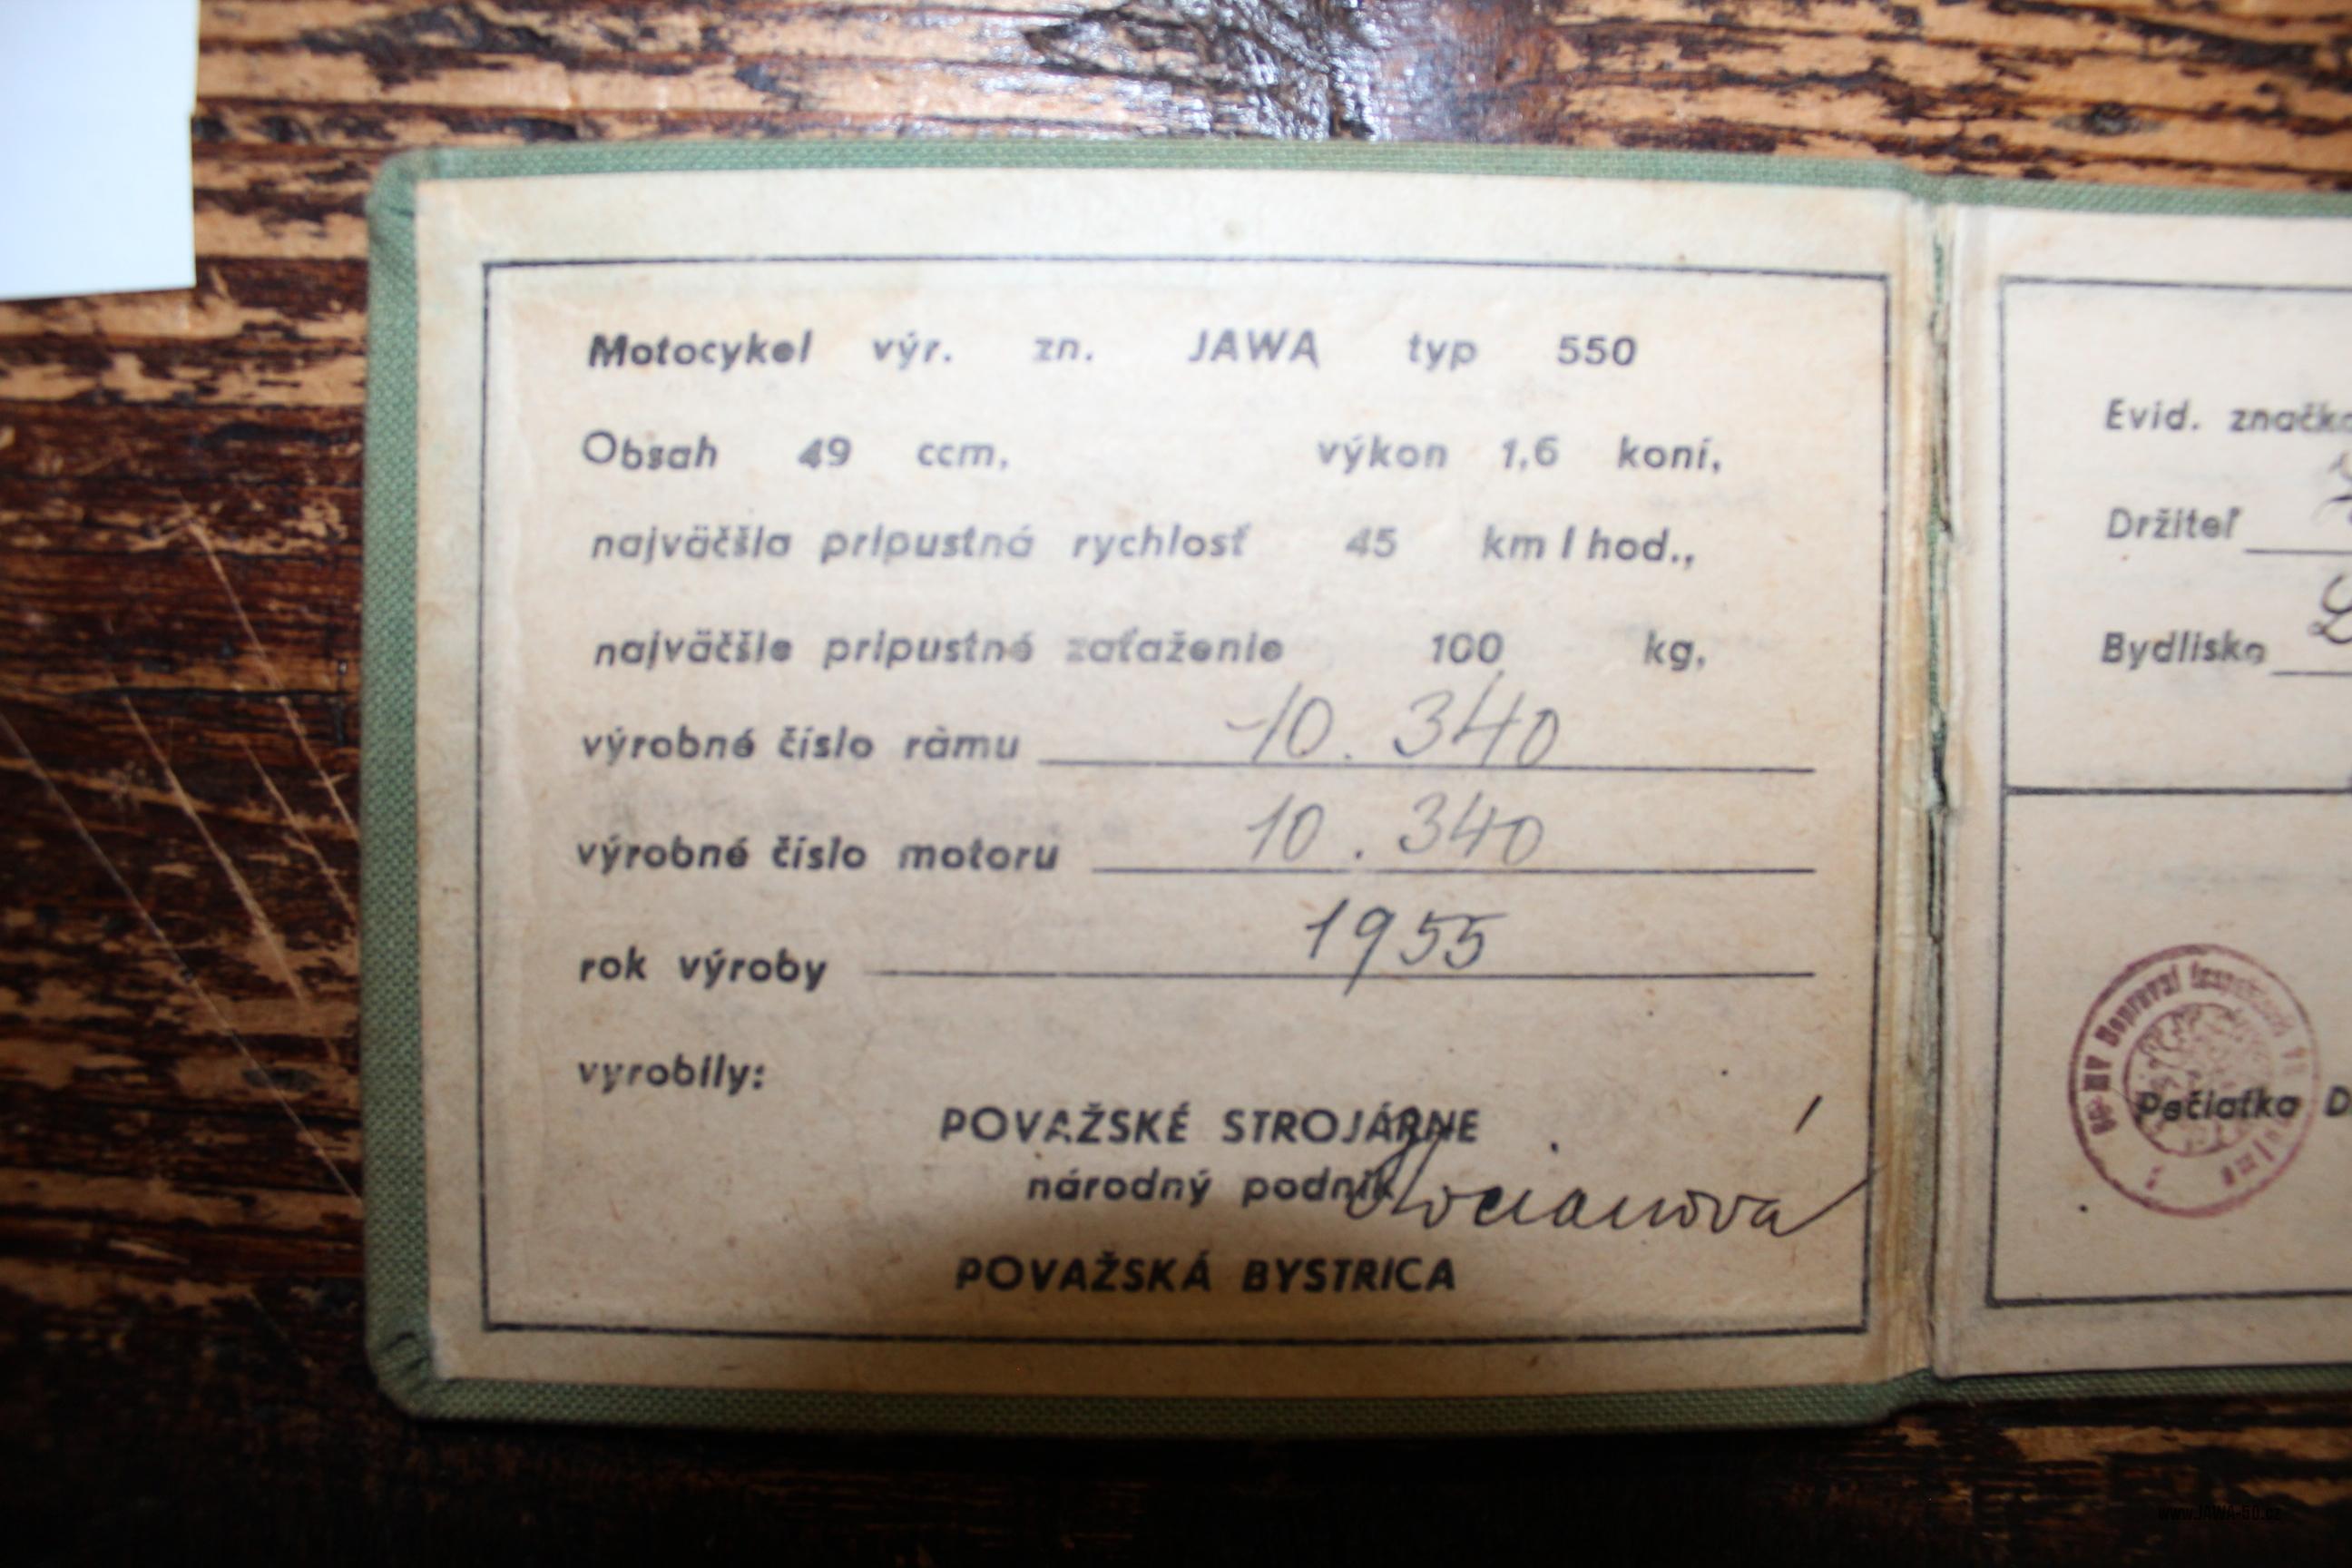 Motocykel výr. zn. JAWA typ 550
Obsah 49 ccm, výkon 1,6 koní,
najväčšia prípustná rychlosť 45 km/hod.,
najväčšie prípustné zaťaženie 100 kg,
výrobné číslo ràmu 10.340
výrobné číslo motoru 10.340
rok výroby 1955
vyrobily:
POVAŽSKÉ STROJÁRNE
národný podnik
Kocianová
POVAŽSKÁ BYSTRICA
Evid. značka
Držiteľ
Bydlisko
Pečiatka D
www.JAWA-50.cz